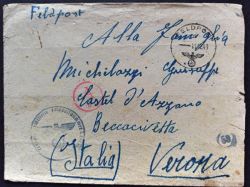 Feldpost
Alla Famiglia
Michelazzi Giuseppe
Castel d'Azzano
Beccacivetta
(Italia) Verona